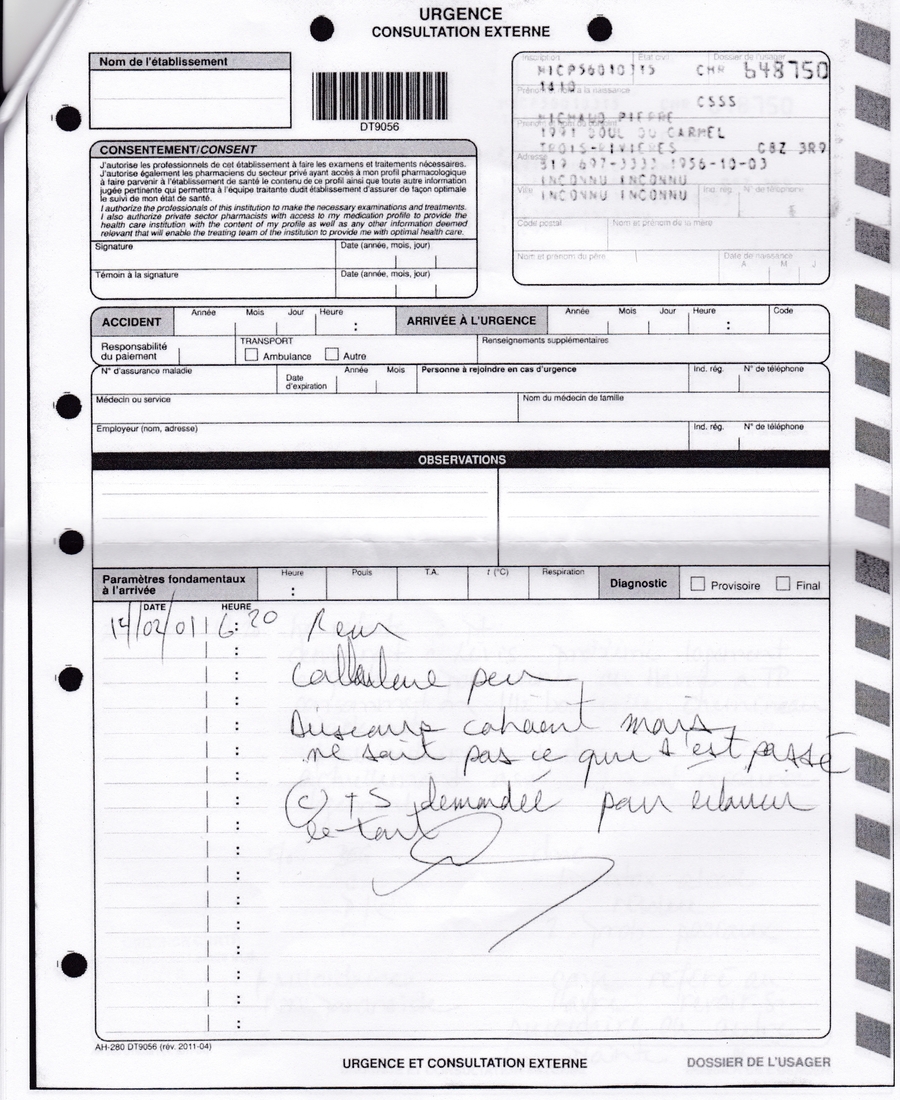 URGENCE
CONSULTATION EXTERNE
Nom de l'établissement
DT9056
Inscription État civil Dossier de l'usager
MICP56010115 CHR 648750
CSSS
MICHAUD PIERRE
1991 BOUL DU CARMEL
TROIS-RIVIERES G8Z 3R9
Adresse
819 697-3333 1956-10-03
INCONNU INCONNU
INCONNU INCONNU
Ville Ind. rég. N° de téléphone
Code postal Nom et prénom de la mère
Nom et prénom du père Date de naissance
A M J
CONSENTEMENT/CONSENT
J'autorise les professionnels de cet établissement à faire les examens et traitements nécessaires.
J'autorise également les pharmaciens du secteur privé ayant accès à mon profil pharmacologique
à faire parvenir à l'établissement de santé le contenu de ce profil ainsi que toute autre information
jugée pertinente qui permettra à l'équipe traitante dudit établissement d'assurer de façon optimale
le suivi de mon état de santé.
I authorize the professionals of this institution to make the necessary examinations and treatments.
I also authorize private sector pharmacists with access to my medication profile to provide the
health care institution with the content of my profile as well as any other information deemed
relevant that will enable the treating team of the institution to provide me with optimal health care.
Signature Date (année, mois, jour)
Témoin à la signature Date (année, mois, jour)
ACCIDENT Année Mois Jour Heure : ARRIVÉE À L'URGENCE Année Mois Jour Heure : Code
Responsabilité du paiement TRANSPORT Ambulance Autre Renseignements supplémentaires
N° d'assurance maladie Date d'expiration Année Mois Personne à rejoindre en cas d'urgence Ind. rég. N° de téléphone
Médecin ou service Nom du médecin de famille
Employeur (nom, adresse) Ind. rég. N° de téléphone
OBSERVATIONS
Paramètres fondamentaux à l'arrivée Heure : Pouls T.A. t (°C) Respiration Diagnostic Provisoire Final
DATE HEURE
14/02/01 16:20 Revu
peu
Discours cohérent mais
ne sait pas ce qui s'est passé
(c) + S demandée pour éclaircir
le tout
AH-280 DT9056 (rév. 2011-04)
URGENCE ET CONSULTATION EXTERNE DOSSIER DE L'USAGER